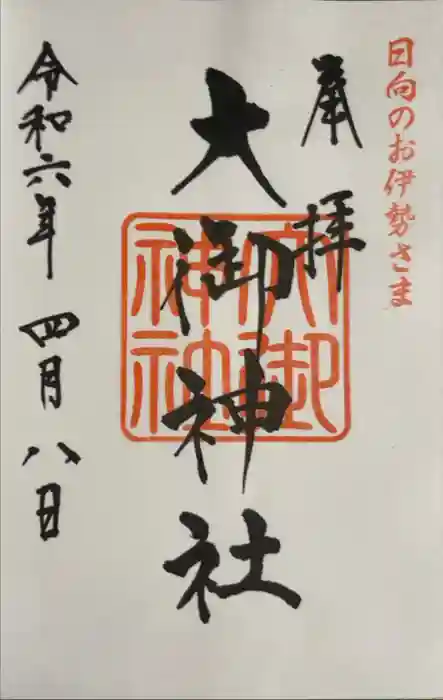 日向のお伊勢さま
奉拝
大御神社
大御
神社
令和六年 四月 八日